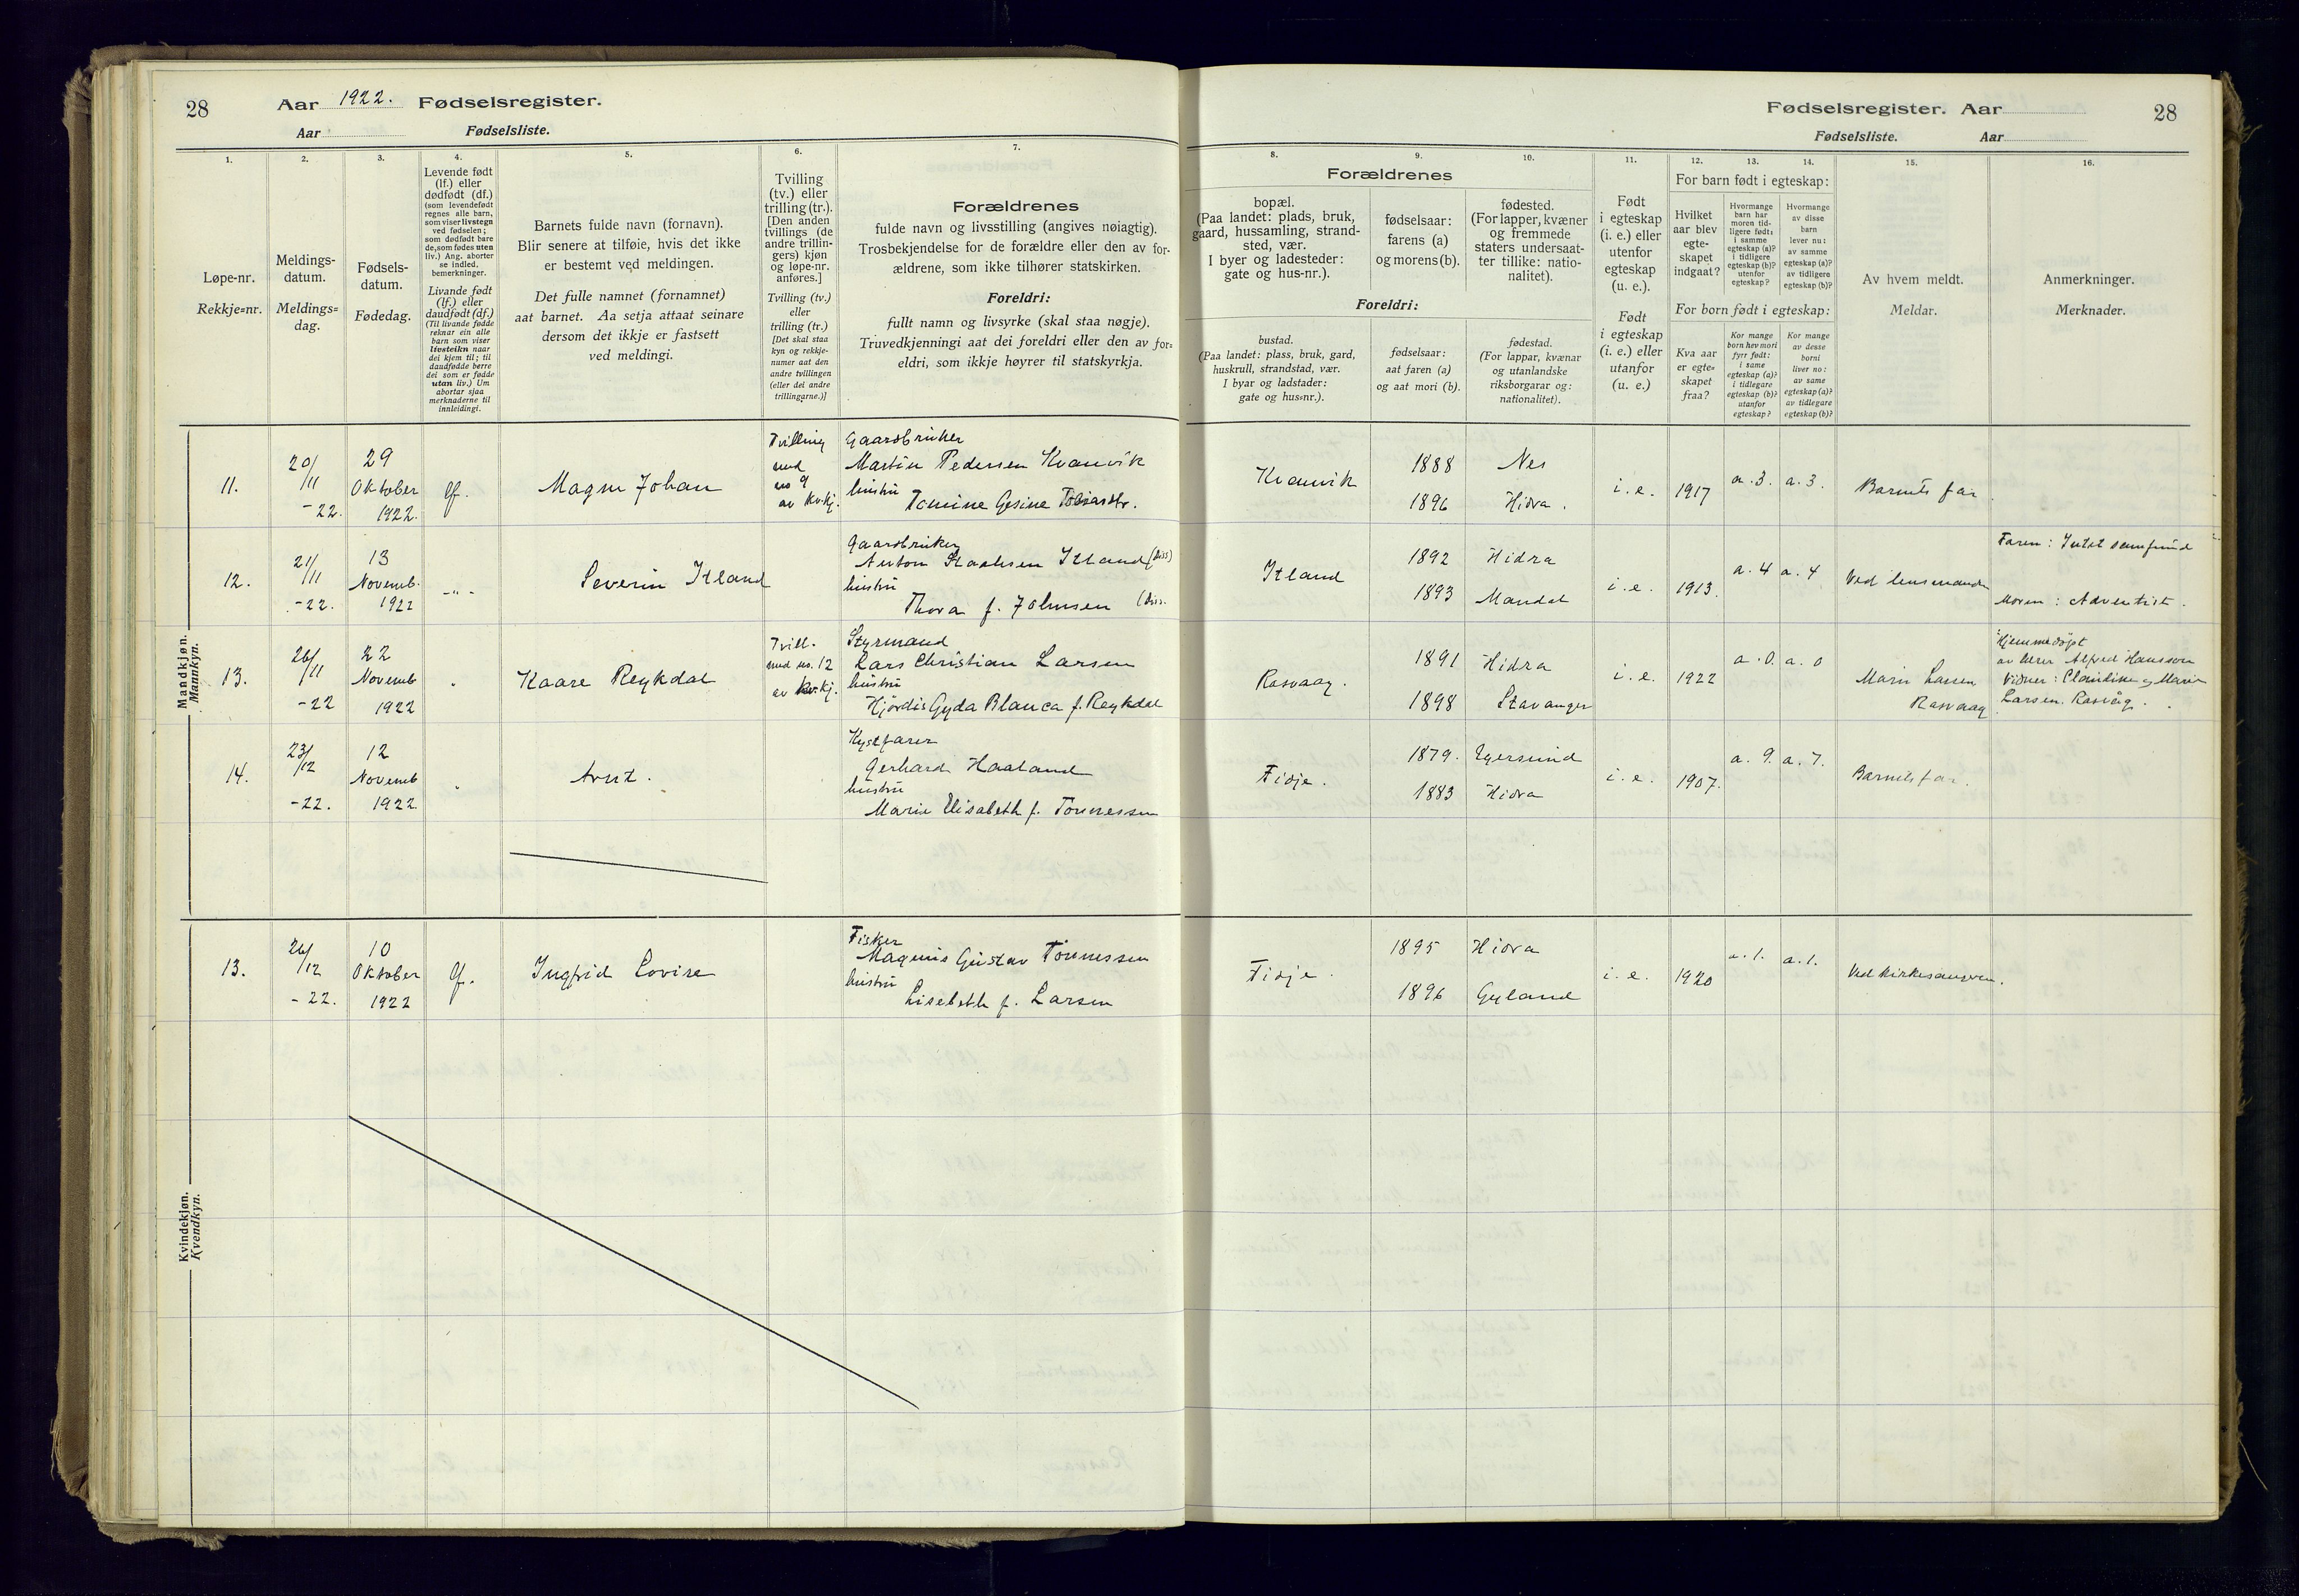 28
Aar 1922. Fødselsregister.
Aar Fødselsliste.
1.
2.
3.
4.
5.
6.
7.
Løpe-nr.
Rekkje=nr.
Meldings-
datum.
Meldings=
dag.
Fødsels-
datum.
Fødedag.
Levende født
(lf.) eller
dødfødt (df.)
(som levendefødt
regnes alle barn,
som viser livstegn
ved fødselen;
som dødfødt bare
de, som fødes uten
liv.) Ang. aborter
se indled.
bemerkninger.
Livande født
(lf.) eller
daudfødt (df.)
(Til livande fødde
reknar ein alle
born som viser
livsteikn naar
dei kjem til; til
daudfødde berre
dei som er fødde
utan liv.) Um
abortar sjaa
merknaderne til
innleidingi.
Barnets fulde navn (fornavn).
Blir senere at tilføie, hvis det ikke
er bestemt ved meldingen.
Det fulle namnet (fornamnet)
aat barnet. Aa setja attaat seinare
dersom det ikkje er fastsett
ved meldingi.
Tvilling
(tv.) eller
trilling (tr.).
[Den anden
tvillings (de
andre trillin-
gers) kjøn
og løpe-nr.
anføres.]
Tvilling (tv.)
eller
trilling (tr.)
[Det skal staa
kyn og rekkje-
numer aat den
andre tvillingen
(eller dei andre
trillingarne.)]
Forældrenes
fulde navn og livsstilling (angives nøiagtig).
Trosbekjendelse for de forældre eller den av for-
ældrene, som ikke tilhører statskirken.
Foreldri:
fullt namn og livsyrke (skal staa nøgje).
Truvedkjenningi aat dei foreldri eller den av for=
eldri, som ikkje høyrer til statskyrkja.
Mandkjøn.
Mannkyn.
11.
20/11
-22.
29
Oktober
1922.
lf.
Magne Johan
Tvilling
med
no 9
av kv.kj.
Gaardbruker
Martin Pedersen Kvanvik
hustru
Tomine Gesine Tobiasdtr.
12.
21/11
-22.
13
Novemb.
1922
-"-
Severin Itland
Gaardbruker
Anton Staalesen Itland (diss)
hustru
Thora f. Johnsen (diss.
13.
26/11
-22
22
Novemb
1922
"
Kaare Reykdal
Tvill.
med no. 12
av kv.kj.
Styrmand
Lars Christian Larsen
hustru
Hjördis Gyda Blanca f. Reykdal
14.
23/12
-22.
12
Novemb
1922
"
Arnt.
Kystfarer
Gerhard Haaland
hustru
Marie Elisabeth f. Tönnessen
Kvindekjøn.
Kvendkyn.
13.
26/12
-22.
10
Oktober
1922
lf.
Ingfrid Lovise
Fisker
Magnus Gustav Tönnessen
hustru
Lisebeth f. Larsen
Fødselsregister. Aar 28
Fødselsliste. Aar
8.
9.
10.
11.
12.
13.
14.
15.
16.
Forældrenes
bopæl.
(Paa landet: plads, bruk,
gaard, hussamling, strand-
sted, vær.
I byer og ladesteder:
gate og hus-nr.).
fødselsaar:
farens (a)
og morens (b).
fødested.
(For lapper, kvæner
og fremmede
staters undersaat-
ter tillike: natio-
nalitet).
Foreldri:
bustad.
(Paa landet: plass, bruk, gard,
huskrull, strandstad, vær.
I byar og ladstader:
gate og hus=nr.).
fødselsaar:
aat faren (a)
og aat mori (b).
fødestad.
(For lappar, kvænar
og utanlandske
riksborgarar og:
nationalitet).
Født
i egteskap
(i. e.) eller
utenfor
egteskap
(u. e.).
Født
i egteskap
(i. e.) eller
utanfor
(u. e.)
For barn født i egteskap:
Hvilket
aar blev
egte-
skapet
indgaat?
Hvormange
barn har
moren tid-
ligere født:
i samme
egteskap (a)?
i tidligere
egteskap (b)?
utenfor
egteskap?
Hvormange
av disse
barn
lever nu:
av samme
egteskap (a)?
av tidligere
egteskap (b)?
For born født i egteskap:
Kva aar
er egte=
skapet
fraa?
Kor mange
born hev mori
fyrr født:
i same
egteskap (a)?
i tidlegare
egteskap (b)?
utanfor
egteskap?
Kor mange
av desse
borni
liver no:
av same
egteskap (a)?
av tidlegare
egteskap (b)?
Av hvem meldt.
Meldar.
Anmerkninger.
Merknader.
Kvanvik
1888
1896
Nes
Hidra.
i. e.
1917
a. 3.
a. 3.
Barnets far.
Itland
1892
1893
Hidra
Mandal
i. e.
1913.
a. 4
a. 4
Ved lensmanden
Faren: Intet samfund
Moren: Adventist.
Rasvaag.
1891
1898
Hidra
Stavanger
i. e.
1922
a. 0.
a. 0
Marie Larsen
Rasvaag
Hjemmedöpt
av lærer Alfred Hansson
Vidner: Claudine og Marie
Larsen. Rasvåg.
Fidje.
1879.
1883
Egersund
Hidra
i. e.
1907.
a. 9.
a. 7.
Barnets far.
Fidje.
1895
1896
Hidra
Gyland
i. e.
1920
a. 1.
a. 1.
Ved kirkesangeren.